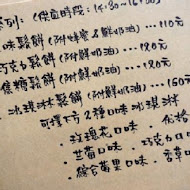 列:(供應時段:14:30~16:00)
味鬆餅(附蜂蜜&鮮奶油)...110元
巧克力鬆餅(附鮮奶油)...120元
焦糖鬆餅(附鮮奶油)...120元
冰淇淋鬆餅(附鮮奶油)...150元
可擇下方2種口味冰淇淋
·玫瑰花口味
·芒菓口味 ·巧克力口
·綜合莓果口味 ·香草口